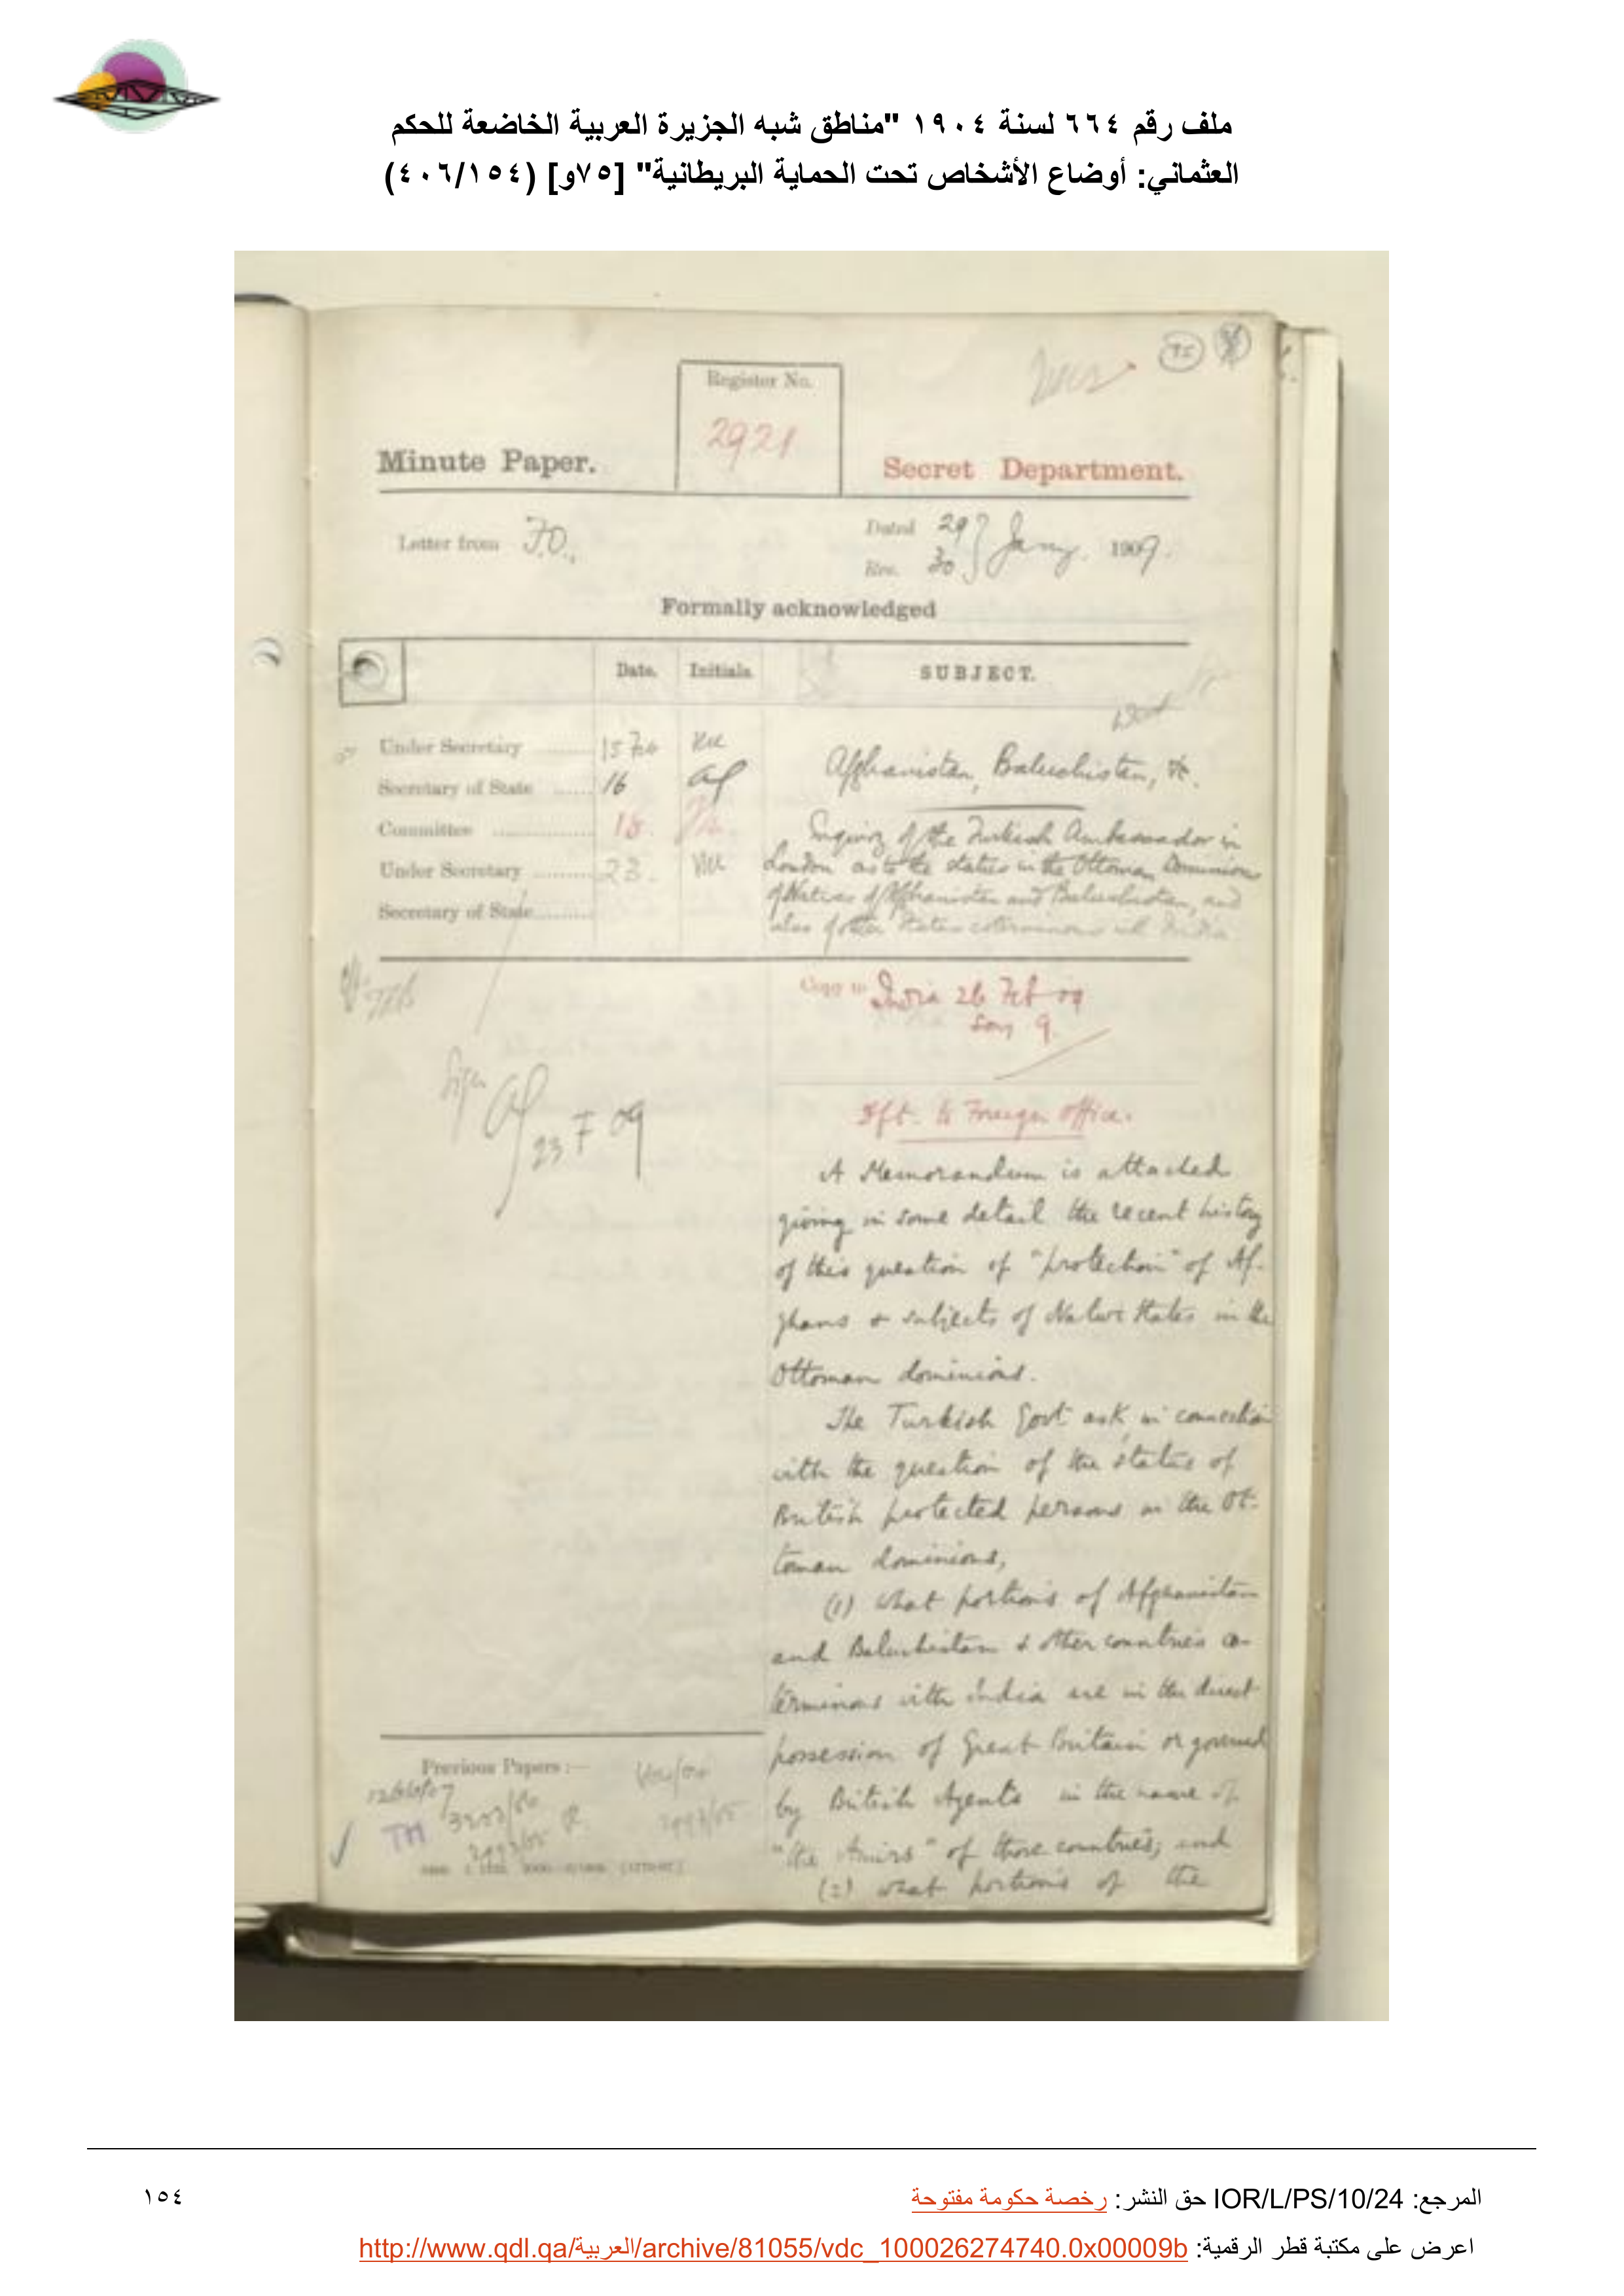 ملف رقم ٦٦٤ لسنة ١٩٠٤ "مناطق شبه الجزيرة العربية الخاضعة للحكم
العثماني: أوضاع الأشخاص تحت الحماية البريطانية" [٧٥و] (٤٠٦/١٥٤)
75
Register No.
2921
Minute Paper.
Secret Department.
Letter from F.O.
Dated 29 Jany. 1909.
Rec. 30
Formally acknowledged
Date. Initials. SUBJECT.
Under Secretary
Secretary of State 16
Committee 18
Under Secretary 23
Secretary of State
Afghanistan, Baluchistan, &c.
Enquiry of the Turkish Ambassador in
London as to the status in the Ottoman Dominions
of Natives of Afghanistan and Baluchistan, and
also of other States coterminous with India
Copy to India 26 Feb 09
Secy 9
23 F 09
Dft. to Foreign Office.
A Memorandum is attached
giving in some detail the recent history
of this question of "protection" of Af-
ghans & subjects of Native States in the
Ottoman dominions.
The Turkish Govt ask, in connection
with the question of the status of
British protected persons in the Ot-
toman dominions,
(1) what portions of Afghanistan
and Baluchistan & other countries co-
terminous with India are in the direct
possession of Great Britain or governed
by British Agents in the name of
"the Amirs" of those countries; and
(2) what portions of the
Previous Papers :—
المرجع: IOR/L/PS/10/24 حق النشر: رخصة حكومة مفتوحة
١٥٤
اعرض على مكتبة قطر الرقمية: http://www.qdl.qa/العربية/archive/81055/vdc_100026274740.0x00009b